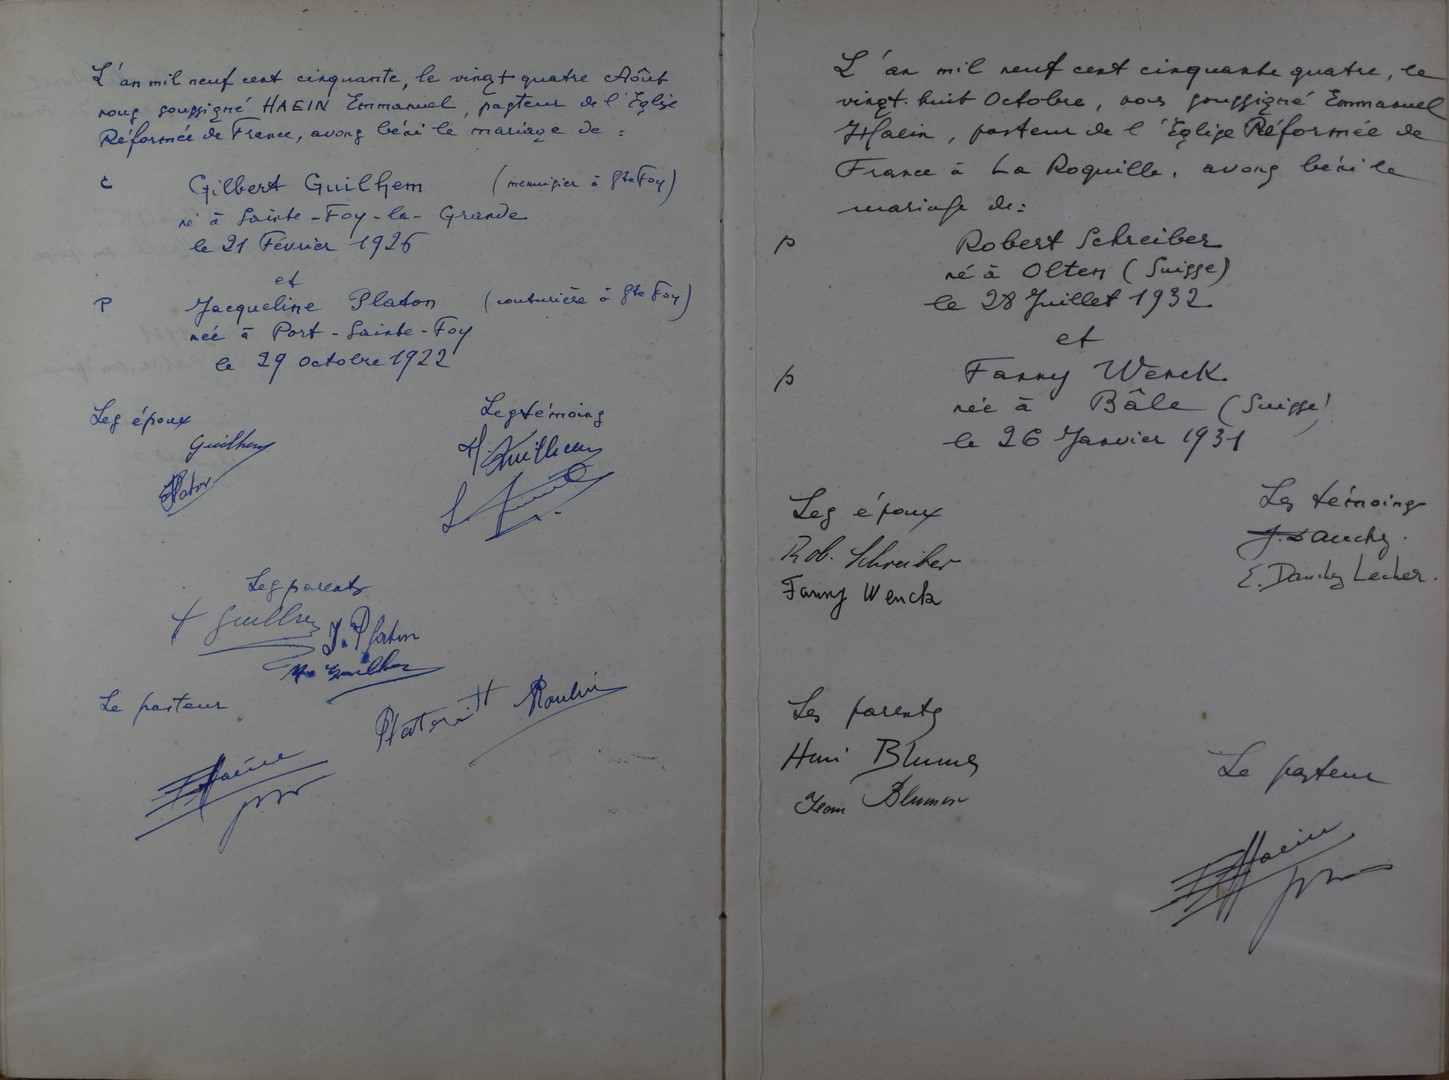 L'an mil neuf cent cinquante, le vingt quatre Août
nous soussigné HAEIN Emmanuel, pasteur de l'Eglise
Réformée de France, avons béni le mariage de :
c Gilbert Guilhem (menuisier à Ste Foy)
né à Sainte-Foy-la-Grande
le 21 Février 1926
et
P Jacqueline Platon (couturière à Ste Foy)
née à Port-Sainte-Foy
le 29 octobre 1922
Les époux Les témoins
Guilhem
Platon
Les parents
Guilhem
J. Platon
Guilhem
Le pasteur
Roulin
Haein
L'an mil neuf cent cinquante quatre, le
vingt-huit Octobre, nous soussigné Emmanuel
Haein, pasteur de l'Eglise Réformée de
France à La Roquille, avons béni le
mariage de :
p Robert Schreiber
né à Olten (Suisse)
le 28 Juillet 1932
et
p Fanny Wenck
née à Bâle (Suisse)
le 26 Janvier 1931
Les époux Les témoins
Rob. Schreiber
Fanny Wenck
Les parents
Blumer
Jean Blumer
Le pasteur
Haein